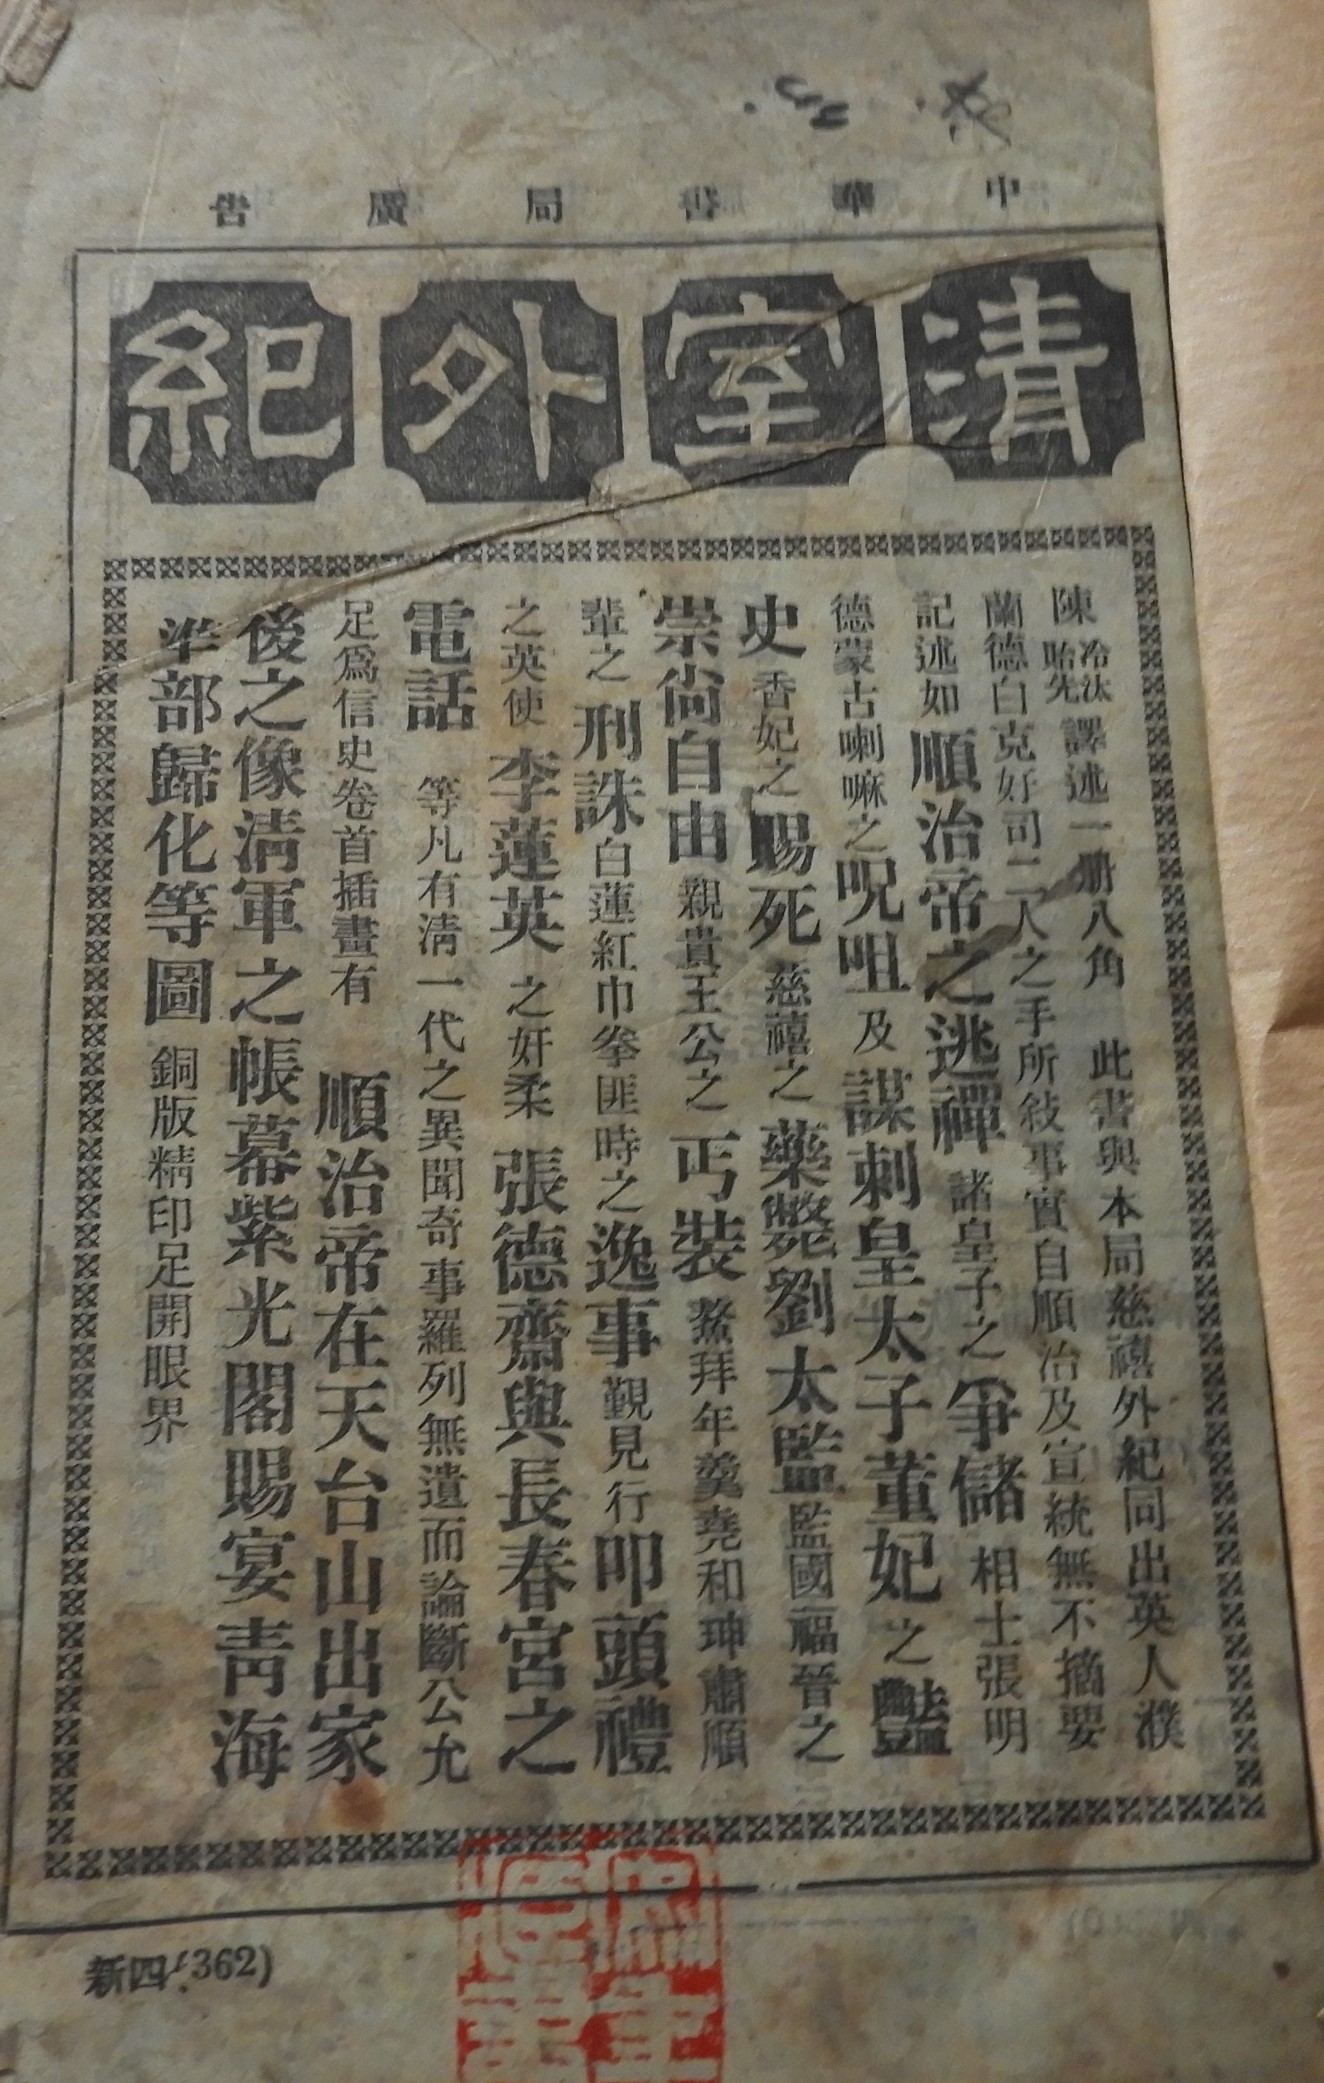 中華書局廣告
清室外紀
陳冷汰貽先譯述一册八角 此書與本局慈禧外紀同出英人濮
蘭德白克好司二人之手所敍事實自順治及宣統無不摘要
記述如順治帝之逃禪諸皇子之爭儲相士張明
德蒙古喇嘛之呪咀及謀刺皇太子董妃之豔
史香妃之賜死慈禧之藥斃劉太監監國福晉之
崇尙自由親貴王公之丐裝鰲拜年羹堯和珅肅順
輩之刑誅白蓮紅巾拳匪時之逸事覲見行叩頭禮
之英使李蓮英之奸柔張德齋與長春宮之
電話 等凡有淸一代之異聞奇事羅列無遺而論斷公允
足爲信史卷首插畫有 順治帝在天台山出家
後之像淸軍之帳幕紫光閣賜宴靑海
準部歸化等圖銅版精印足開眼界
新四(362)